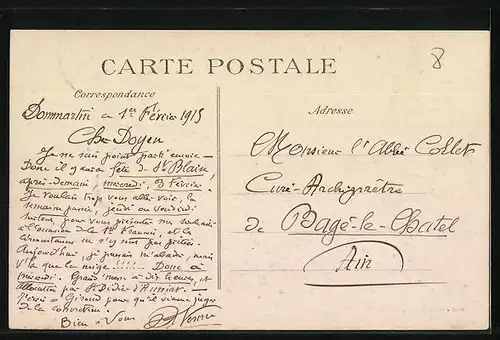 8
CARTE POSTALE
Correspondance
Dommartin le 1er Février 1915
Cher Doyen
Je ne suis point parti encore -
Donc il y aura fête de St Blaise,
après-demain, mercredi, 3 Février.
Je voulais trop vous aller voir, la
semaine passée, jeudi ou vendredi
surtout, pour vous présenter mes souhaits
à l'occasion de la St François, et les
circonstances ne s'y sont pas prêtées.
Aujourd'hui, je pensais mais
v'là que la neige ..... Donc à
mercredi. Grand'messe à dix heures, et
allocution par St Didier d'Aussiat.
J'écris à Giroud pour qu'il vienne juger
de la conviction.
Bien à Vous
Adresse
Monsieur l'Abbé Collet
Curé-Archiprêtre
de Bagé-le-Chatel
Ain